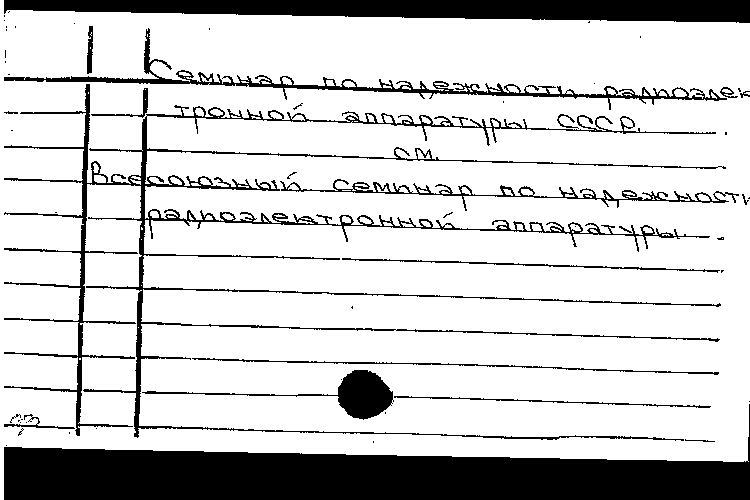 Семинар по надежности радиоэлек
тронной аппаратуры СССР.
см.
Всесоюзный семинар по надежности
радиоэлектронной аппаратуры.